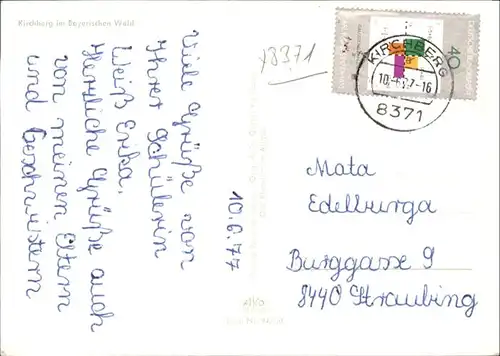 Kirchberg im Bayerischen Wald
Viele Grüße von
Ihrer Schülerin
Weiß Erika.
Herzliche Grüße auch
von meinen Eltern
und Geschwistern
10.6.77
8371
40
KIRCHBERG
-16
8371
Mata
Edelburga
Burggasse 9
8440 Straubing